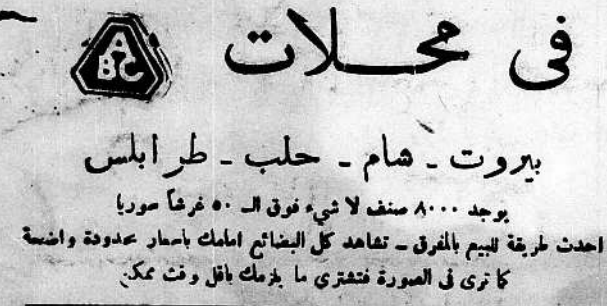 في محلات ABC
بيروت ـ شام ـ حلب ـ طرابلس
يوجد ٨٠٠٠ صنف لا شيء فوق الـ ٥٠ غرشاً سوريا
احدث طريقة للبيع بالمفرق ـ تشاهد كل البضائع امامك باسعار محدودة واضحة
كما ترى في الصورة فتشتري ما يلزمك باقل وقت ممكن